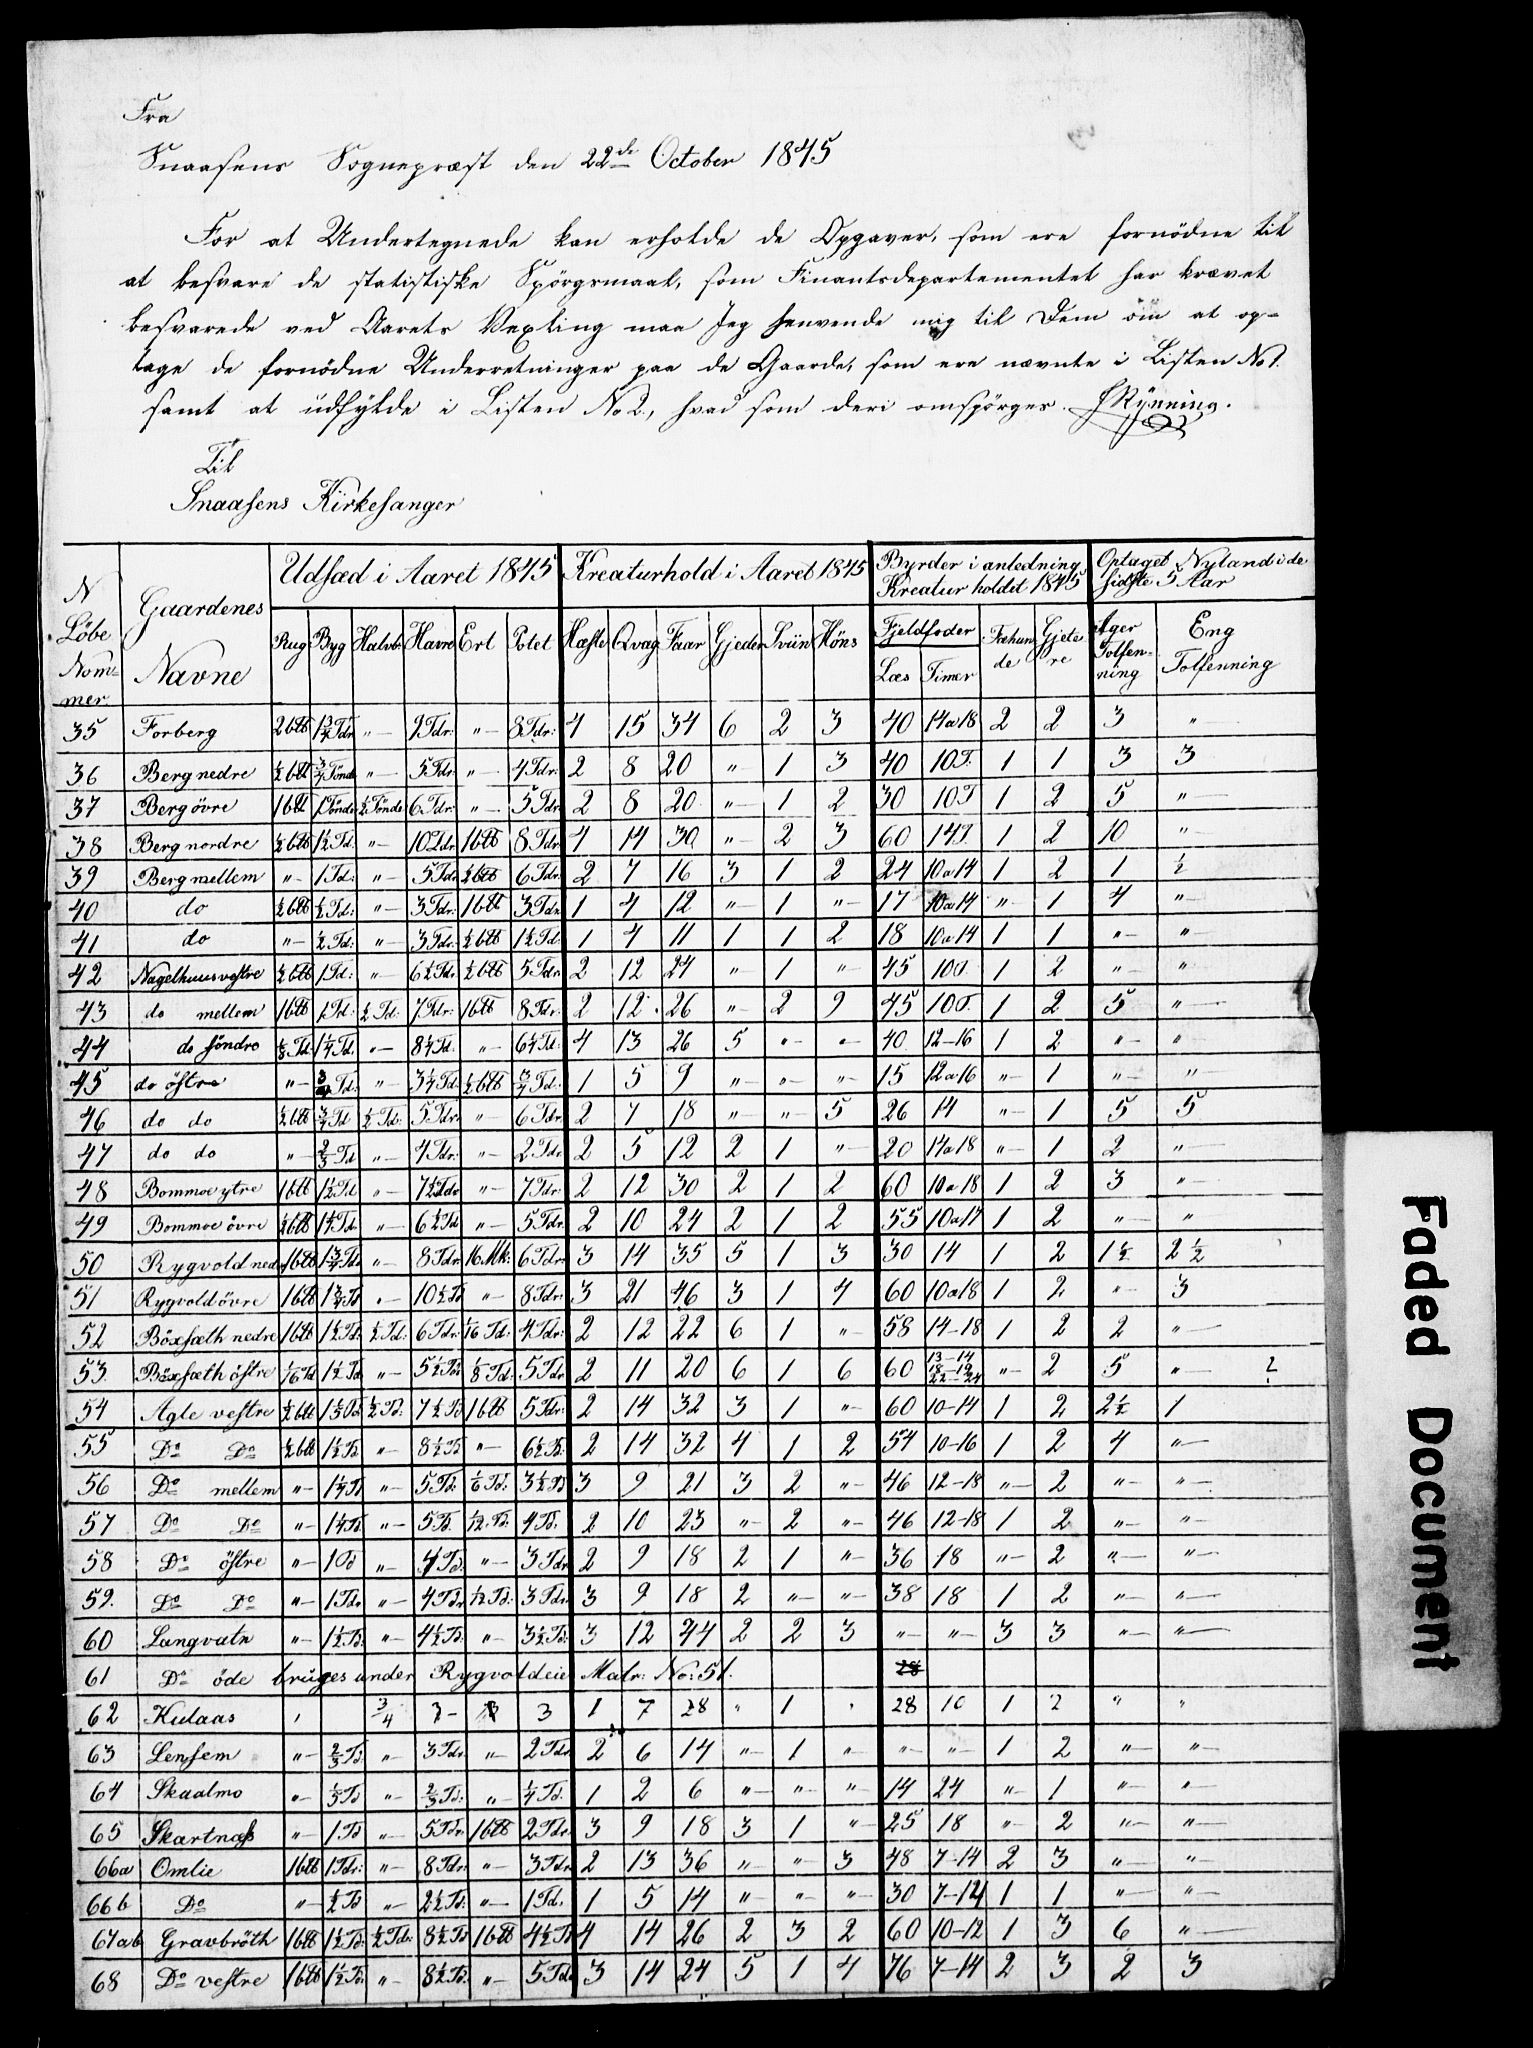 Fra
Snaasens Sognepræst den 22de October 1845
For at Undertegnede kan erholde de Opgaver, som ere fornödne til
at besvare de statistiske Spörgsmaal, som Finantsdepartementet har krævet
besvarede ved Aarets Vexling maa Jeg henvende mig til Dem om at op-
tage de fornödne Underretninger paa de Gaarde, som ere nævnte i Listen No 1.
samt at udfylde i Listen No 2, hvad som deri omspörges. Rynning.
Til
Snaasens Kirkesanger
N Löbe Nom=mer Gaardenes Navne Udsæd i Aaret 1845 Kreaturhold i Aaret 1845 Byrder i anledning Kreaturholdet 1845 Optaget Nyland i de sidste 5 Aar
Rug Byg Halvb: Havre Ert Potet Hæste Qvæg Faar Gjeder Sviin Höns Fjeldfoder Læs Timer Fæhunde Gjetere Ager Tolfenning Eng Tolfenning
35 Forberg 2btt 1 3/4 Tdr "— 9 Tdr: "— 8 Tdr: 4 15 34 6 2 3 40 14a18 2 2 3 "—
36 Berg nedre 1/2 btt 3/4 Tönde "— 5 Tdr: "— 4 Tdr: 2 8 20 "— 1 3 40 10 T. 1 1 3 3
37 Berg övre 1btt 1 Tönde 1/2 Tönde 6 Tdr: "— 5 Tdr 2 8 20 "— 1 2 30 10 T 1 2 5 "—
38 Berg nordre 1/2 btt 1 1/2 Td. "— 10 Tdr 1btt 8 Tdr 4 14 30 "— 2 3 60 14 T. 1 2 10 "—
39 Berg mellem "— 1 Td: "— 5 Tdr 1/2 btt 6 Tdr: 2 7 16 3 1 2 24 10a14 1 2 1 1/2
40 do 1/2 btt 1/2 Td: "— 3 Tdr: 1btt 3 Tdr 1 4 12 "— 1 "— 17 10a14 "— 1 4 "—
41 do "— 1/2 Td: "— 3 Tdr: 1/2 btt 1 1/2 Td: 1 4 11 1 1 2 18 10a14 1 1 "— "—
42 Nagelhuus vestre 1/2 btt 1 Td: "— 6 1/2 Tdr 1/2 btt 5 Tdr: 2 12 24 "— 1 "— 45 10 T. 1 2 "— "—
43 do mellem 1btt 1 Td: 1/2 Td: 7 Tdr: 1btt 8 Tdr: 2 12 26 "— 2 9 45 10 T. 1 2 5 "—
44 do söndre 1/8 Td: 1 1/4 Td. "— 8 1/4 Td. "— 6 1/4 Td: 4 13 26 5 "— "— 40 12–16 1 2 "— "—
45 do östre "— 3/4 Td: "— 3 1/4 Td: 1/2 btt Td: 1 5 9 "— "— "— 15 12a16 "— 1 "— "—
46 do do 1/2 btt 3/4 Td 1/2 Td: 5 Tdr: "— 6 Tdr: 2 7 18 "— "— 5 26 14 "— 1 5 5
47 do do "— 2/3 Td "— 4 Tdr: "— 2 Tdr: 2 5 12 2 1 "— 20 14a18 "— 1 2 "—
48 Bommoe ytre 1btt 1 1/2 Td "— 7 1/2 Tdr "— 7 Tdr: 2 12 30 2 1 2 60 10a18 1 2 3 "—
49 Bommoe övre 1/2 btt 1 1/4 Td. "— 6 1/2 Td "— 5 Tdr: 2 10 24 2 1 2 55 10a17 1 2 "— "—
50 Rygvold nedre 1btt 1 3/4 Tdr "— 8 Tdr: 16 Mk: 6 Tdr: 3 14 35 5 1 3 30 14 1 2 1 1/2 2 1/2
51 Rygvold övre 1btt 1 3/4 Td "— 10 1/2 Td "— 8 Tdr: 3 21 46 3 1 4 60 10a18 1 2 "— 3
52 Böxsæth nedre 1btt 1 1/2 Td: 1/2 Td: 6 Tdr: 1/16 Td: 4 Tdr: 2 12 22 6 1 "— 58 14–18 1 2 2 "—
53. Böxsæth östre 1/16 Td 1 1/2 Td "— 5 1/2 Tdr 1/8 Td: 5 Tdr 2 11 20 6 1 6 60 13–14 18–19 22–24 "— 2 5 "— ?
54 Agle vestre 1/2 btt 1 1/3 Td 1/2 Td: 7 1/2 Td 1btt 5 Tdr: 2 14 32 3 1 "— 60 10–14 1 2 2 1/2 1
55 Do Do 1/2 btt 1 1/2 Td "— 8 1/2 Td "— 6 1/2 Td: 2 14 32 4 1 2 54 10–16 1 2 4 "—
56 Do mellem "— 1 1/4 Td "— 5 Td: 1/6 Td: 3 1/2 Td 3 9 21 3 2 "— 46 12–18 "— 2 "— "—
57 Do Do "— 1 1/4 Td. "— 5 Td. 1/12 Td: 4 Td. 2 10 23 "— 2 "— 46 12–18 1 2 "— "—
58 Do östre "— 1 Td "— 4 Td. "— 3 Tdr 2 9 18 2 1 "— 36 18 "— 2 "— "—
59. Do Do "— 1 Tdr "— 4 Tdr 1/12 Td: 3 Tdr 3 9 18 2 "— "— 38 18 1 2 "— "—
60 Langvatn "— 1 1/2 Td. "— 4 1/2 Td. "— 3 1/2 Td: 3 12 44 2 2 3 "— "— 3 3 "— "—
61 Do öde bruges under Rygvold eier Matr: No: 51. 28
62 Kulaas " 3/4 3 1 7 28 " 1 " 28 10 1 2 " "
63 Lensem "— 2/3 Td "— 3 Tdr: "— 2 Tdr 2 6 14 "— 1 "— "— "— 1 2 "— "—
64 Skaalmo "— 1/3 Td "— 2/3 Td: "— 1/4 Td. 1 2 6 "— "— "— 14 24 "— 1 "— "—
65 Skartnæs "— 1 Td "— 5 Tdr. 1btt 2 Tdr. 3 9 18 3 1 "— 25 18 "— 2 "— "—
66a Omlie 1btt 1 Tdr: "— 8 Tdr: "— 3 Tdr 2 13 36 "— "— 3 48 7–14 2 3 "— "—
66b Do "— 1/2 Td "— 2 1/2 Td: "— 1 Td. 1 5 14 "— "— "— 30 7–14 1 1 "— "—
67ab Gravbröth 1btt 1 1/2 Td: 1/2 Td: 8 1/2 Td 1btt 4 1/2 Td 4 14 26 2 3 2 60 10–12 1 3 6 "—
68 Do vestre 1btt 1 1/2 Td. "— 8 1/2 Td. "— 5 Tdr 3 14 24 5 1 4 76 7–14 2 3 2 3
Faded Document